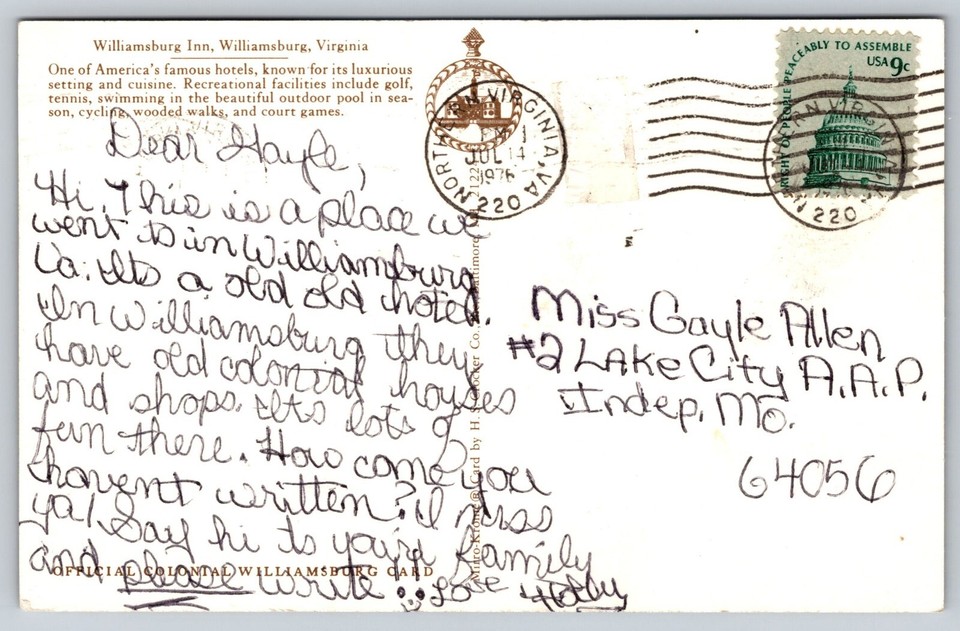 Williamsburg Inn, Williamsburg, Virginia
One of America's famous hotels, known for its luxurious
setting and cuisine. Recreational facilities include golf,
tennis, swimming in the beautiful outdoor pool in sea-
son, cycling, wooded walks, and court games.
Dear Gayle,
Hi. This is a place we
went to in Williamburg
Va. Its a old old hotel.
In Williamsburg they
have old colonial houses
and shops. Its lots of
fun there. How come you
havent written? I miss
ya! Say hi to you're family
and please write.. Love Holly
OFFICIAL COLONIAL WILLIAMSBURG CARD
Card by H.
NORTHERN VIRGINIA, VA
JUL 14
1976
220
PEACEABLY TO ASSEMBLE
USA 9c
RIGHT OF PEOPLE
220
Miss Gayle Allen
#2 Lake City A.A.P.
Indep, Mo.
64056